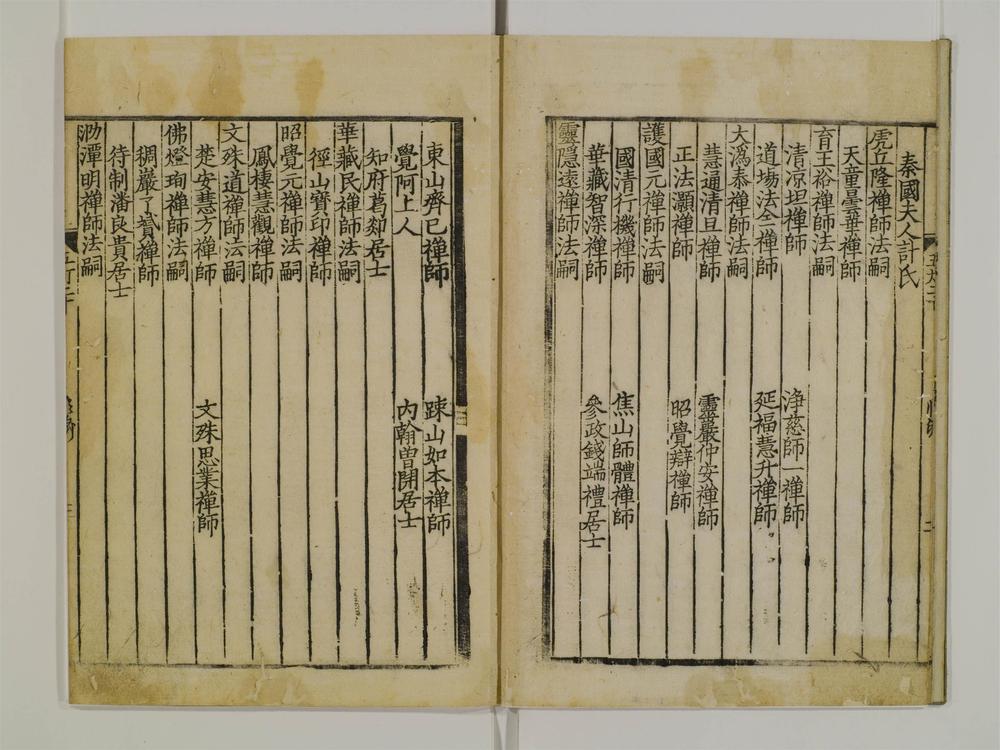 秦國夫人許氏
虎丘隆禪師法嗣
天童曇華禪師
育王裕禪師法嗣
清凉坦禪師 淨慈師一禪師
道塲法全禪師 延福慧升禪師
大溈泰禪師法嗣
慧通清旦禪師 靈巖仲安禪師
正法灝禪師 昭覺辯禪師
護國元禪師法嗣
國清行機禪師 焦山師體禪師
華藏智深禪師 參政錢端禮居士
靈隱遠禪師法嗣
東山齊已禪師 踈山如本禪師
覺阿上人 内翰曾開居士
知府葛郯居士
華藏民禪師法嗣
徑山寶印禪師
昭覺元禪師法嗣
鳳棲慧觀禪師
文殊道禪師法嗣
楚安慧方禪師 文殊思業禪師
佛燈珣禪師法嗣
稠巖了贇禪師
待制潘良貴居士
泐潭明禪師法嗣